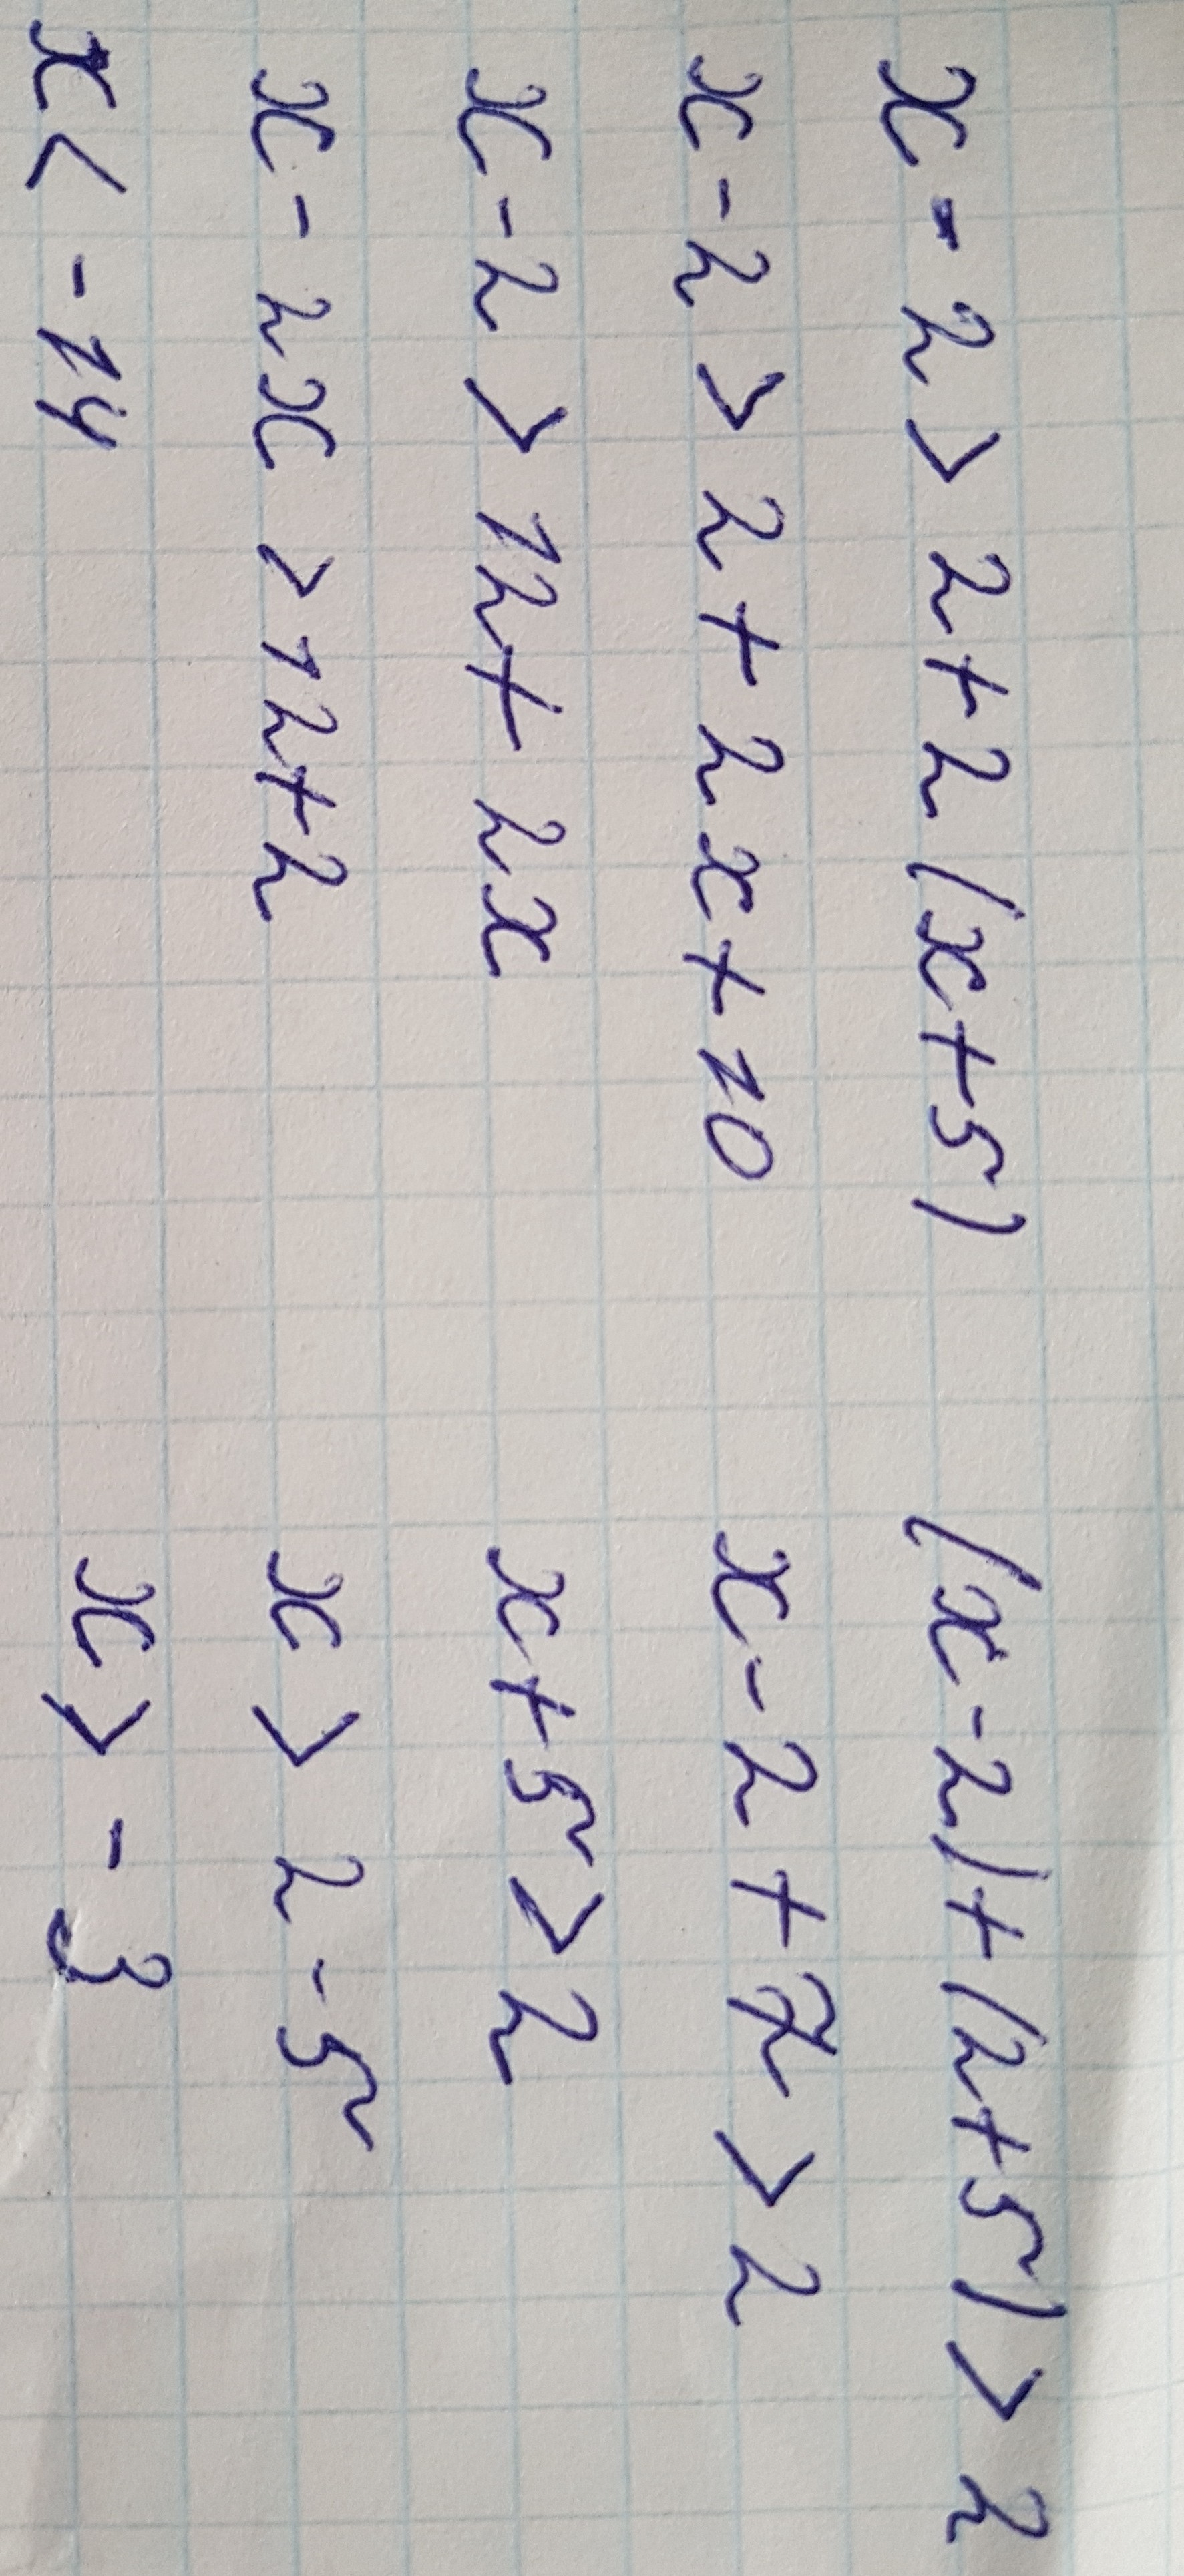 x - 2 > 2 + 2 (x + 5)
x - 2 > 2 + 2x + 10
x - 2 > 12 + 2x
x - 2x > 12 + 2
x < -14
(x - 2) + (2 + 5) > 2
x - 2 + 7 > 2
x + 5 > 2
x > 2 - 5
x > -3